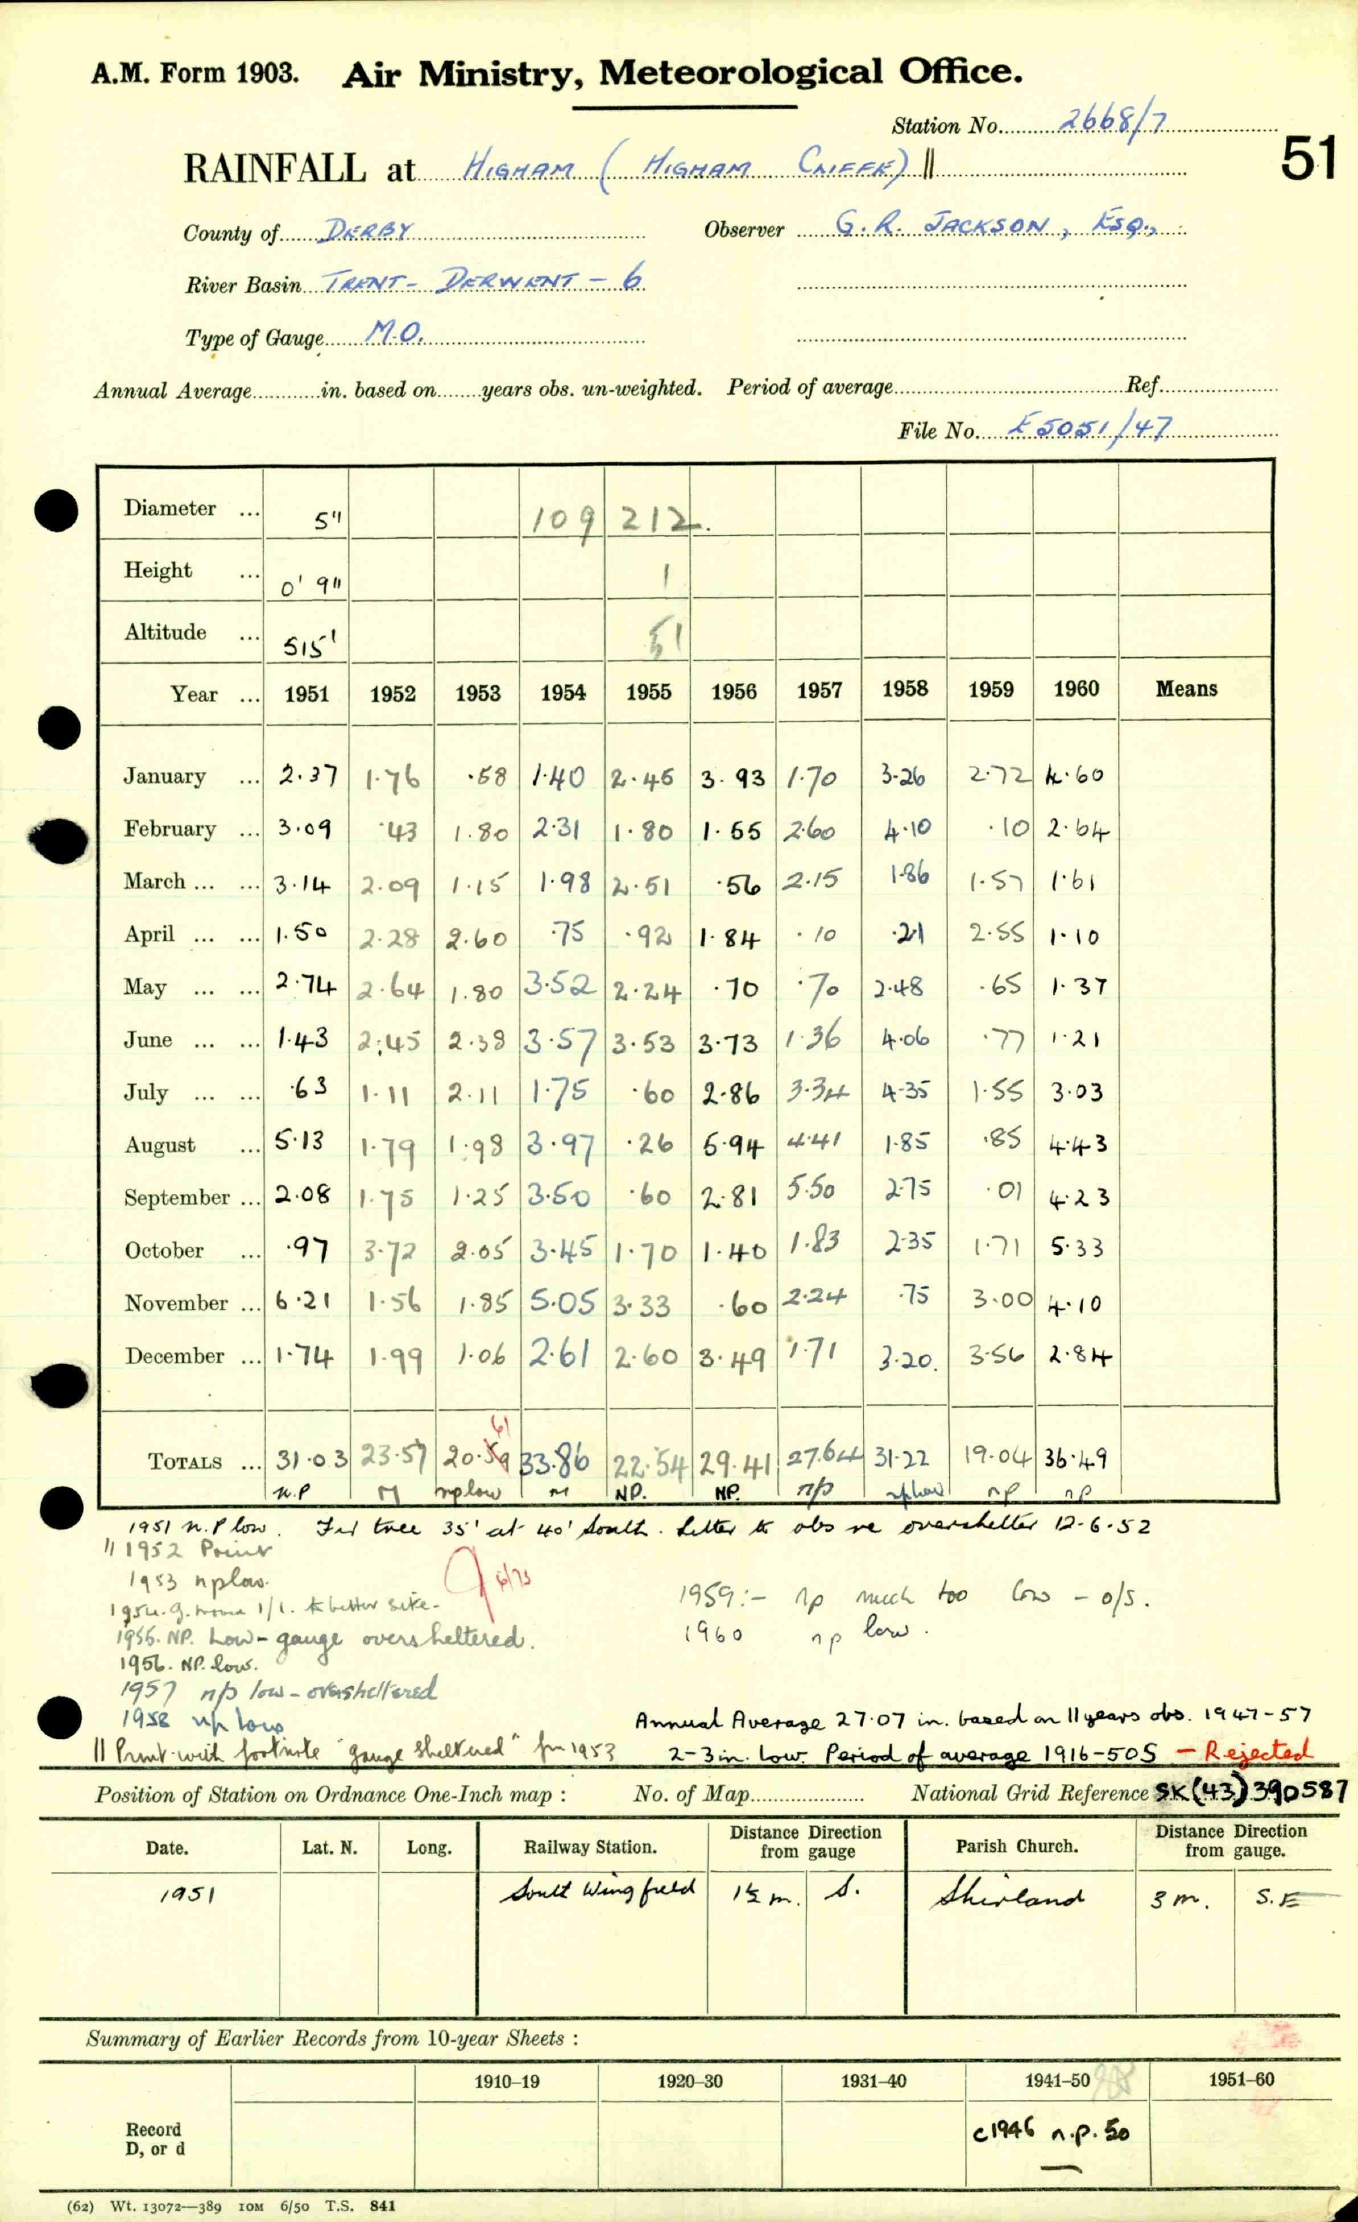 A.M. Form 1903. Air Ministry, Meteorological Office.
Station No. 2668/7
51
RAINFALL at HIGHAM (HIGHAM CLIFFE) ||
County of DERBY Observer G. R. JACKSON, ESQ.,
River Basin TRENT - DERWENT - 6
Type of Gauge M.O.
Annual Average in. based on years obs. un-weighted. Period of average Ref.
File No. E5051/47
Diameter ... 5" 109 212.
Height ... 0' 9" 1
Altitude ... 515' 51
Year ... 1951 1952 1953 1954 1955 1956 1957 1958 1959 1960 Means
January ... 2.37 1.76 .58 1.40 2.45 3.93 1.70 3.26 2.72 4.60
February ... 3.09 .43 1.80 2.31 1.80 1.55 2.60 4.10 .10 2.64
March ... ... 3.14 2.09 1.15 1.98 2.51 .56 2.15 1.86 1.57 1.61
April ... ... 1.50 2.28 2.60 .75 .92 1.84 .10 .21 2.55 1.10
May ... ... 2.74 2.64 1.80 3.52 2.24 .70 .70 2.48 .65 1.37
June ... ... 1.43 2.45 2.38 3.57 3.53 3.73 1.36 4.06 .77 1.21
July ... ... .63 1.11 2.11 1.75 .60 2.86 3.34 4.35 1.55 3.03
August ... 5.13 1.79 1.98 3.97 .26 5.94 4.41 1.85 .85 4.43
September ... 2.08 1.75 1.25 3.50 .60 2.81 5.50 2.75 .01 4.23
October ... .97 3.72 2.05 3.45 1.70 1.40 1.83 2.35 1.71 5.33
November ... 6.21 1.56 1.85 5.05 3.33 .60 2.24 .75 3.00 4.10
December ... 1.74 1.99 1.06 2.61 2.60 3.49 1.71 3.20. 3.56 2.84
61
TOTALS ... 31.03 23.57 20.59 33.86 22.54 29.41 27.64 31.22 19.04 36.49
n.P M nplow M NP. NP. n/p nplow np np
1951 n.P low. Fir tree 35' at 40' South. Letter to obs re overshelter 12-6-52
|| 1952 Print
1953 nplow.
6/73
1954. g. moved 1/1. to better site.
1959:- np much too low - o/s.
1955. NP. Low - gauge oversheltered.
1960 np low.
1956. NP. low.
1957 n/p low - oversheltered
1958 np low
Annual Average 27.07 in. based on 11 years obs. 1947-57
|| Print with footnote "gauge sheltered" for 1953
2-3in. Low. Period of average 1916-50S - Rejected
Position of Station on Ordnance One-Inch map : No. of Map National Grid Reference SK(43)390587
Date. Lat. N. Long. Railway Station. Distance from Direction gauge Parish Church. Distance from Direction gauge.
1951 South Wingfield 1½ m. S. Shirland 3 m. S.E
Summary of Earlier Records from 10-year Sheets :
1910–19 1920–30 1931–40 1941–50 1951–60
Record D, or d c1946 n.p. 50
(62) Wt. 13072—389 10M 6/50 T.S. 841